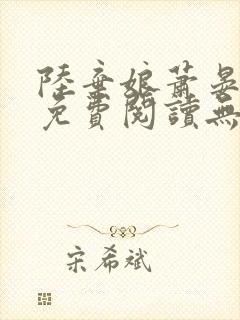 陸棄娘蕭晏
免費閱讀無
宋希斌